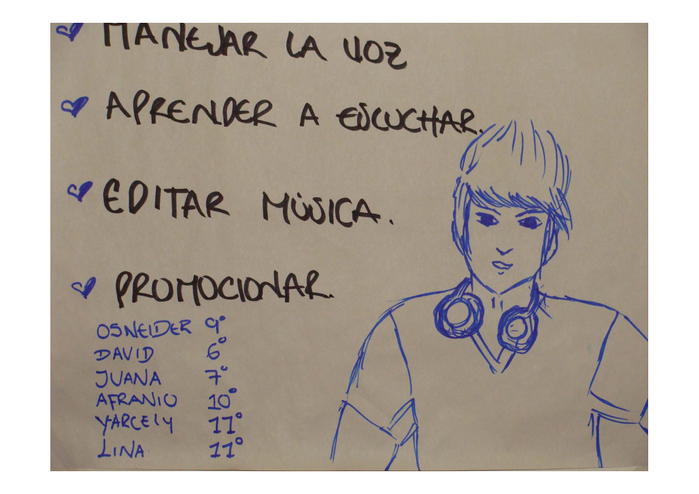 MANEJAR LA VOZ
APRENDER A ESCUCHAR.
EDITAR MÚSICA.
PROMOCIONAR.
OSNEIDER 9°
DAVID 6°
JUANA 7°
AFRANIO 10°
YARCELY 11°
LINA 11°